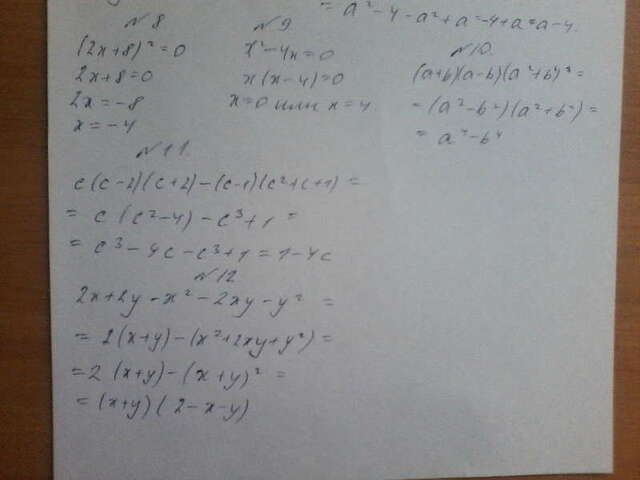 = a² - 4 - a² + a - 4 + a = a - 4.
№8
(2x+8)² = 0
2x+8=0
2x = -8
x = -4
№9
x² - 4x = 0
x(x-4)=0
x=0 или x=4.
№10.
(a+b)(a-b)(a²+b²) =
= (a²-b²)(a²+b²) =
= a⁴-b⁴
№11.
c(c-2)(c+2)-(c-1)(c²+c+1) =
= c(c²-4) - c³+1 =
= c³ - 4c - c³+1 = 1-4c
№12
2x+2y - x² - 2xy - y² =
= 2(x+y)-(x²+2xy+y²) =
= 2(x+y)-(x+y)² =
= (x+y)(2-x-y)